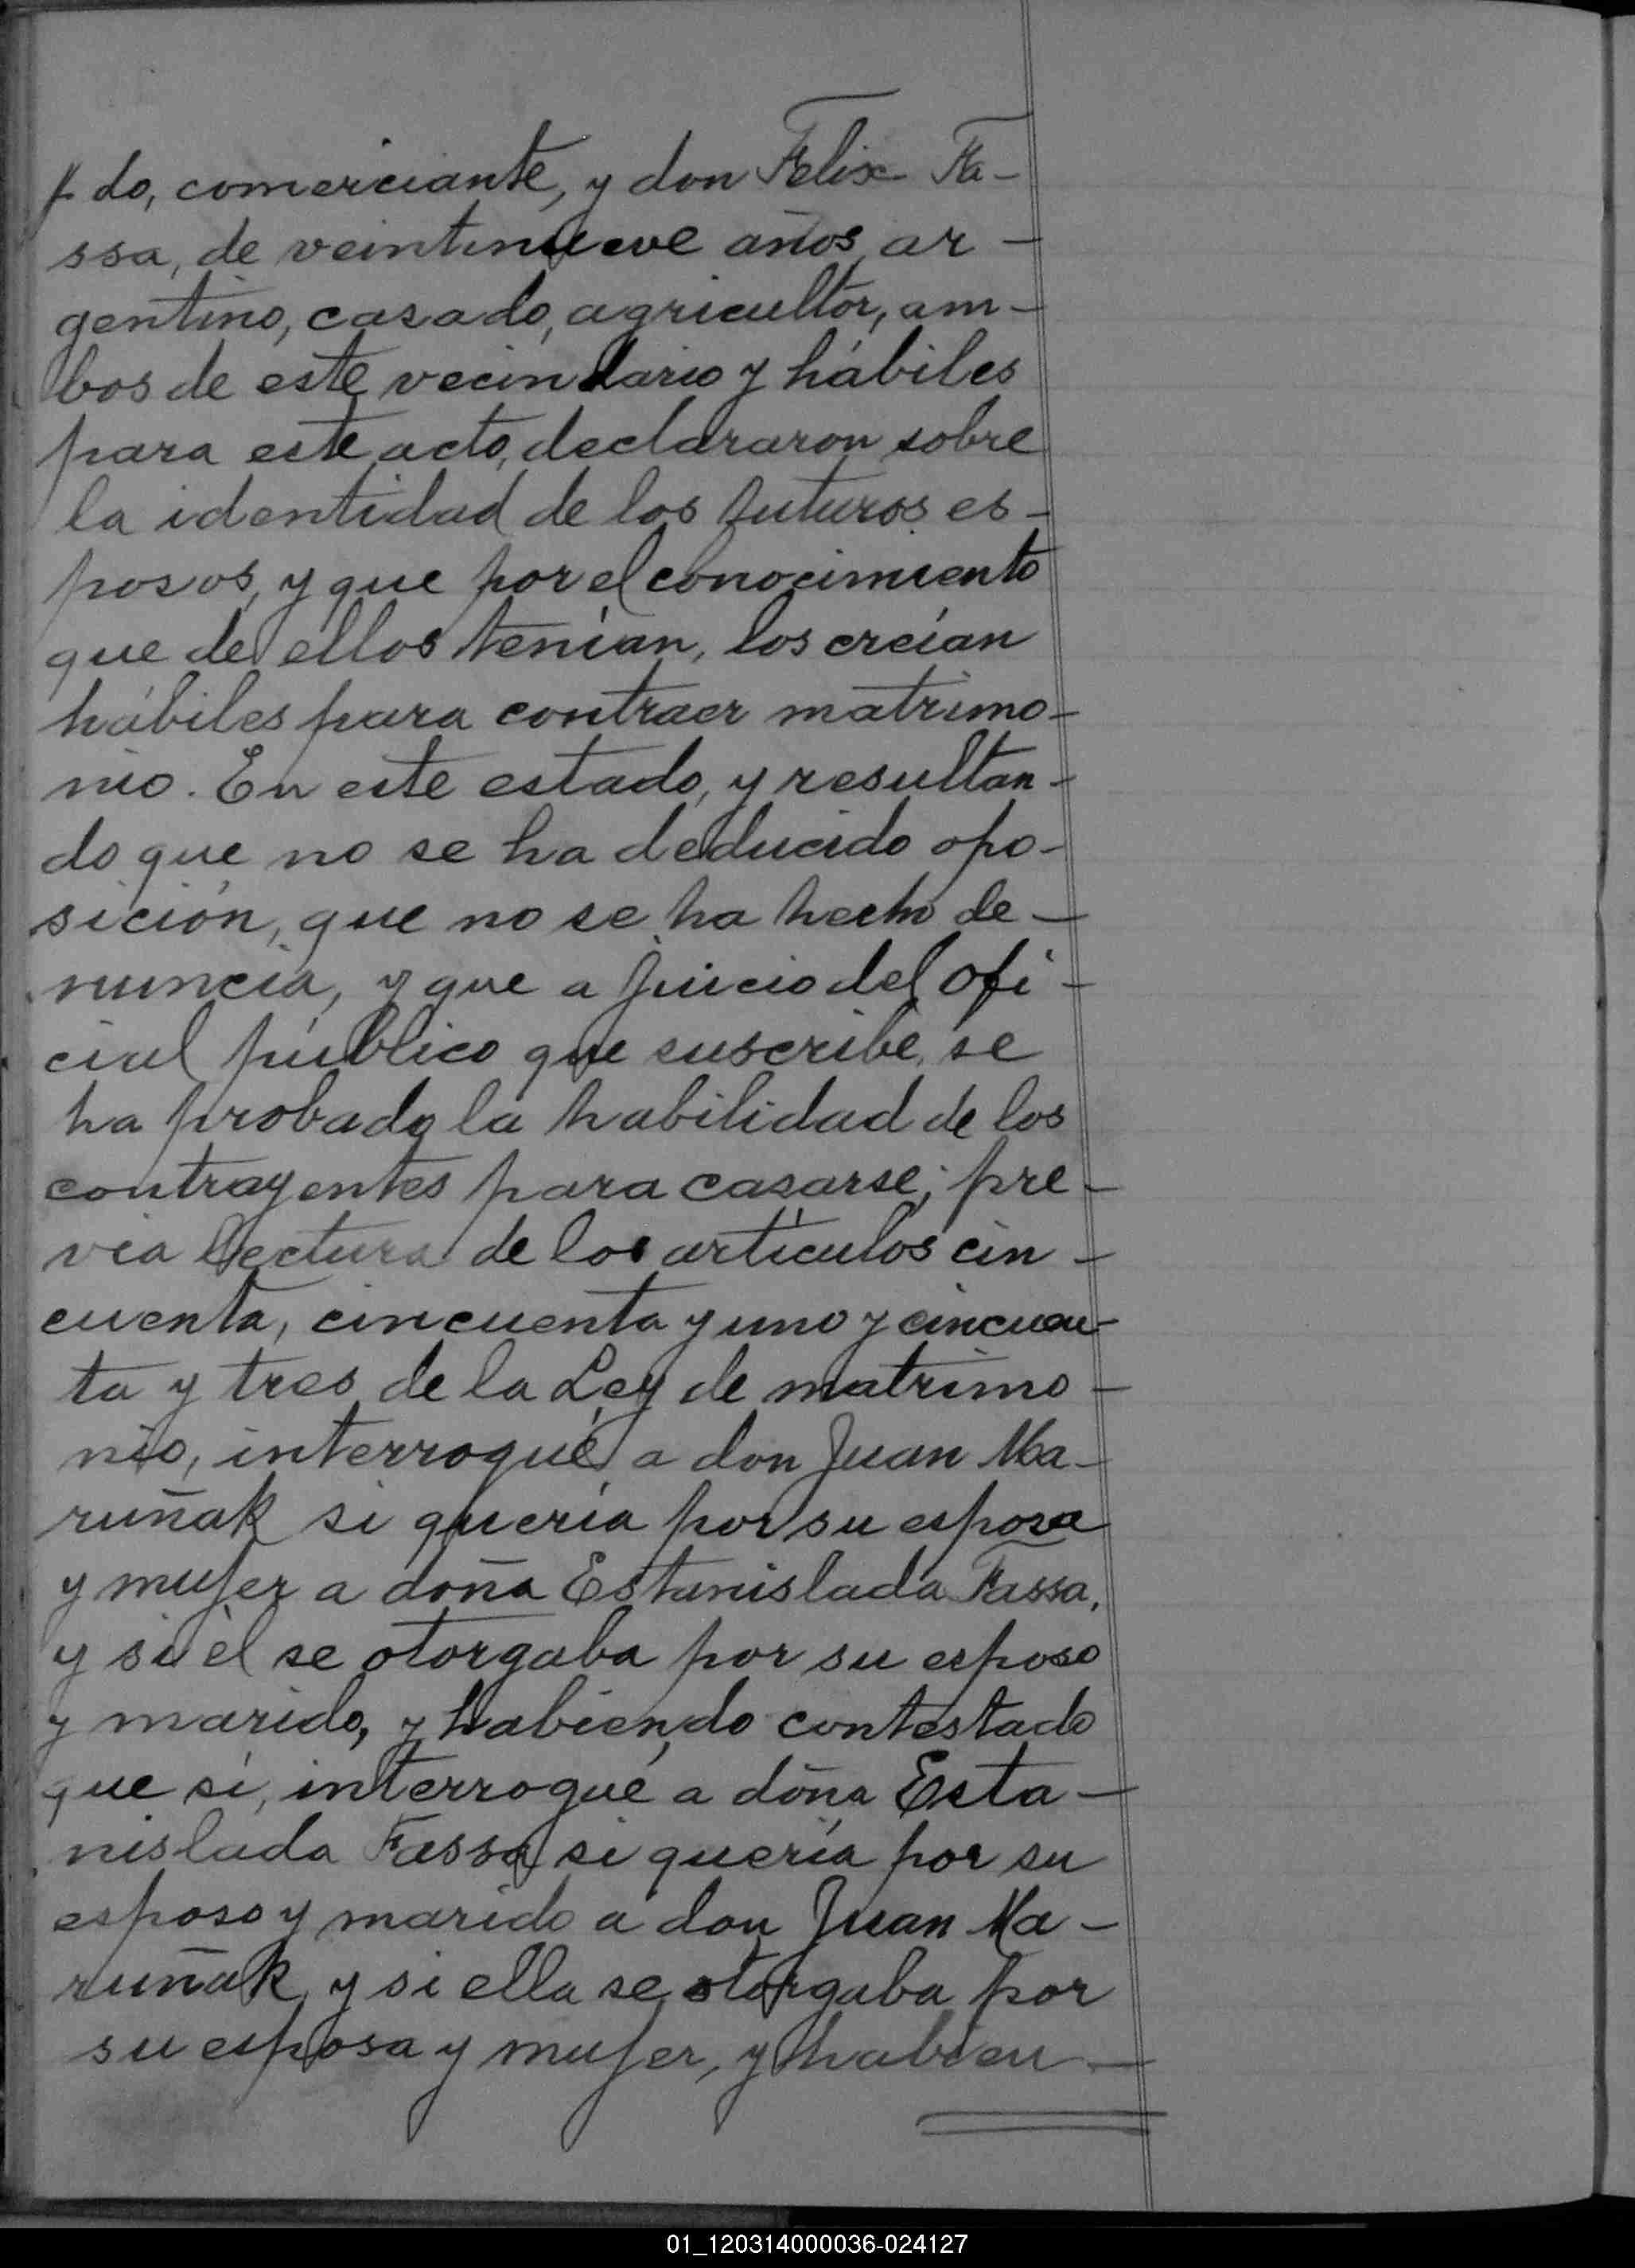 do, comerciante, y don Felix Fa-
ssa, de veintinueve años, ar-
gentino, casado, agricultor, am-
bos de este vecindario y hábiles
para este acto, declararon sobre
la identidad de los futuros es-
posos, y que por el conocimiento
que de ellos tenían, los creían
hábiles para contraer matrimo-
nio. En este estado, y resultan-
do que no se ha deducido opo-
sición, que no se ha hecho de-
nuncia, y que a juicio del ofi-
cial público que suscribe, se
ha probado la habilidad de los
contrayentes para casarse; pre-
via lectura de los artículos cin-
cuenta, cincuenta y uno y cincuen-
ta y tres de la Ley de matrimo-
nio, interrogué a don Juan Ma-
ruñak si quería por su esposa
y mujer a doña Estanislada Fassa,
y si él se otorgaba por su esposo
y marido, y habiendo contestado
que sí, interrogué a doña Esta-
nislada Fassa si quería por su
esposo y marido a don Juan Ma-
ruñak, y si ella se otorgaba por
su esposa y mujer, y habien-
01_120314000036-024127